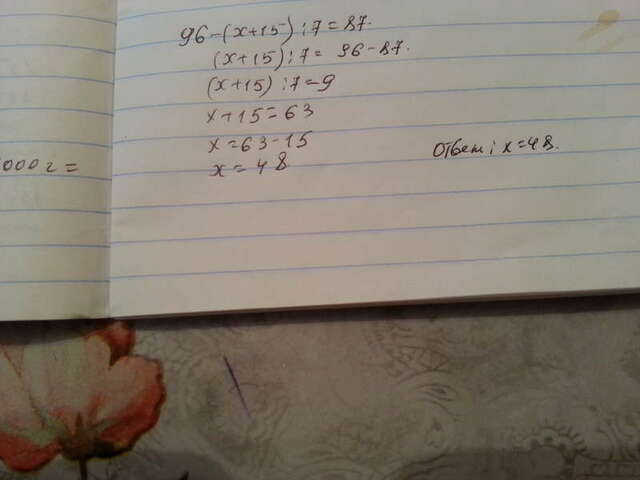 96-(x+15):7=87.
(x+15):7= 96-87.
(x+15):7=9
x+15=63
x=63-15
x=48
Ответ: x=48.
000г=